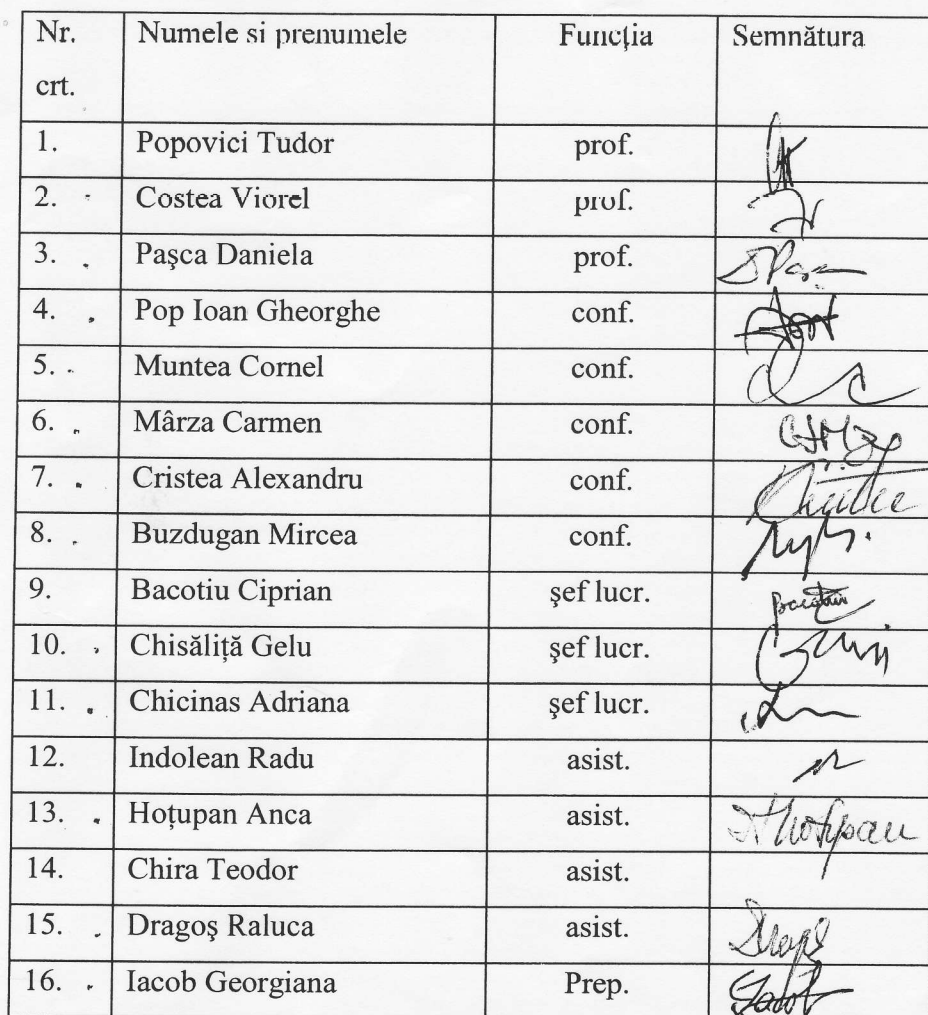 Nr. crt. Numele si prenumele Funcţia Semnătura
1. Popovici Tudor prof.
2. Costea Viorel prof.
3. Paşca Daniela prof.
4. Pop Ioan Gheorghe conf.
5. Muntea Cornel conf.
6. Mârza Carmen conf.
7. Cristea Alexandru conf.
8. Buzdugan Mircea conf.
9. Bacotiu Ciprian şef lucr.
10. Chisăliţă Gelu şef lucr.
11. Chicinas Adriana şef lucr.
12. Indolean Radu asist.
13. Hoţupan Anca asist.
14. Chira Teodor asist.
15. Dragoş Raluca asist.
16. Iacob Georgiana Prep.